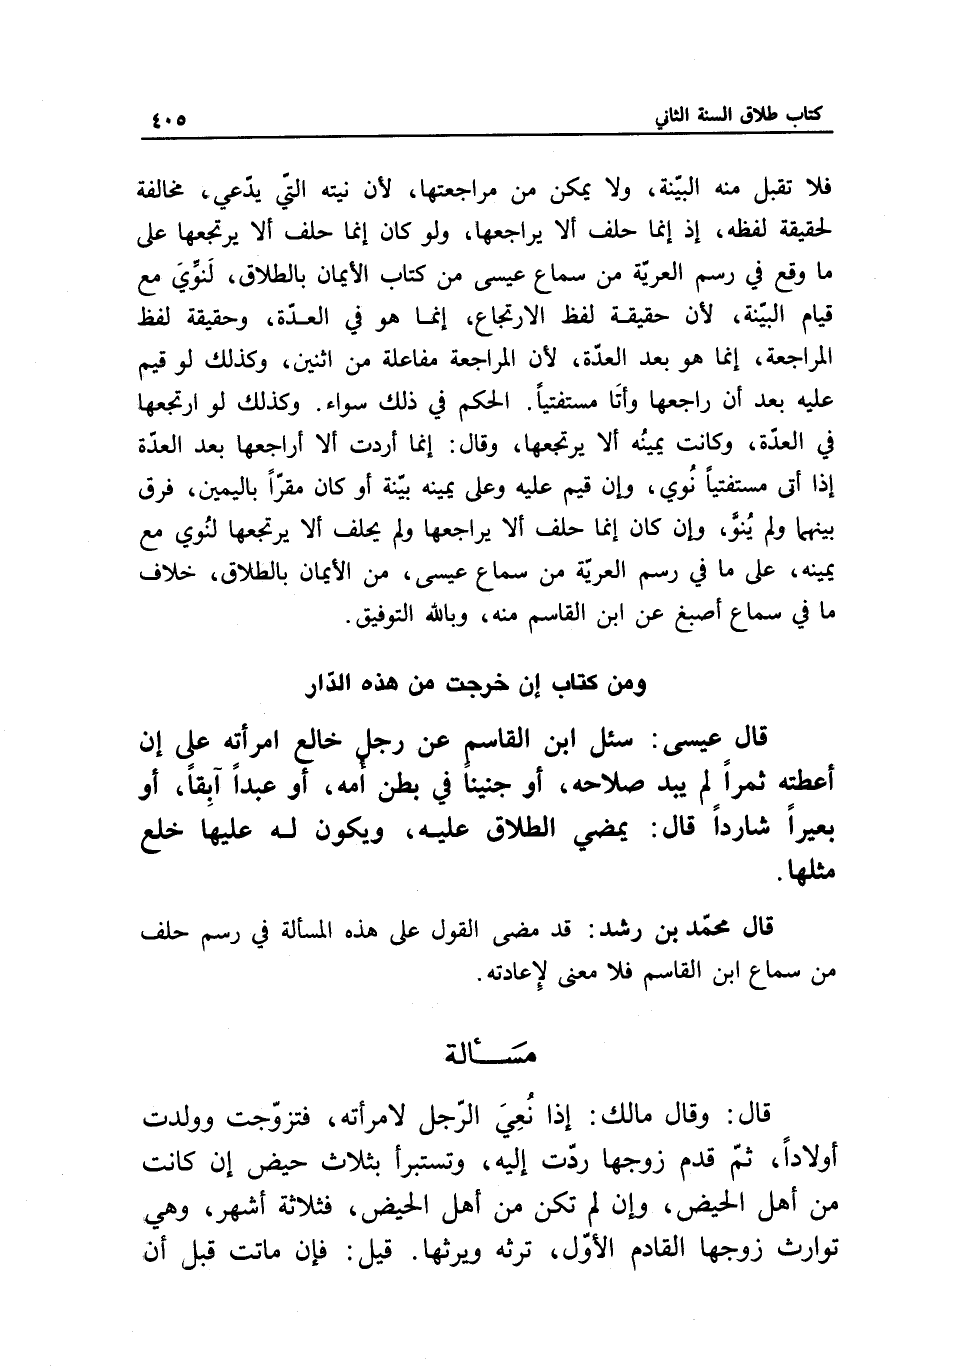 كتاب طلاق السنة الثاني
٤٠٥
فلا تقبل منه البيّنة، ولا يمكن من مراجعتها، لأن نيته التّي يدّعي، مخالفة
لحقيقة لفظه، إذ إنما حلف ألا يراجعها، ولو كان إنما حلف ألا يرتجعها على
ما وقع في رسم العريّة من سماع عيسى من كتاب الأيمان بالطلاق، لَنوِّيَ مع
قيام البيّنة، لأن حقيقة لفظ الارتجاع، إنما هو في العدّة، وحقيقة لفظ
المراجعة، إنما هو بعد العدّة، لأن المراجعة مفاعلة من اثنين، وكذلك لو قيم
عليه بعد أن راجعها وأتَا مستفتياً. الحكم في ذلك سواء. وكذلك لو ارتجعها
في العدّة، وكانت يمينُه ألا يرتجعها، وقال: إنما أردت ألا أراجعها بعد العدّة
إذا أتى مستفتياً نُوي، وإن قيم عليه وعلى يمينه بيّنة أو كان مقرّاً باليمين، فرق
بينهما ولم يُنوَّ، وإن كان إنما حلف ألا يراجعها ولم يحلف ألا يرتجعها لنُوي مع
يمينه، على ما في رسم العريّة من سماع عيسى، من الأيمان بالطلاق، خلاف
ما في سماع أصبغ عن ابن القاسم منه، وبالله التوفيق.
ومن كتاب إن خرجت من هذه الدّار
قال عيسى: سئل ابن القاسم عن رجل خالع امرأته على إن
أعطته ثمراً لم يبد صلاحه، أو جنيناً في بطن أمه، أو عبداً آبِقاً، أو
بعيراً شارداً قال: يمضي الطلاق عليه، ويكون له عليها خلع
مثلها.
قال محمّد بن رشد: قد مضى القول على هذه المسألة في رسم حلف
من سماع ابن القاسم فلا معنى لإِعادته.
مَسْـألة
قال: وقال مالك: إذا نُعِيَ الرّجل لامرأته، فتزوّجت وولدت
أولاداً، ثمّ قدم زوجها ردّت إليه، وتستبرأ بثلاث حيض إن كانت
من أهل الحيض، وإن لم تكن من أهل الحيض، فثلاثة أشهر، وهي
توارث زوجها القادم الأوّل، ترثه ويرثها. قيل: فإن ماتت قبل أن